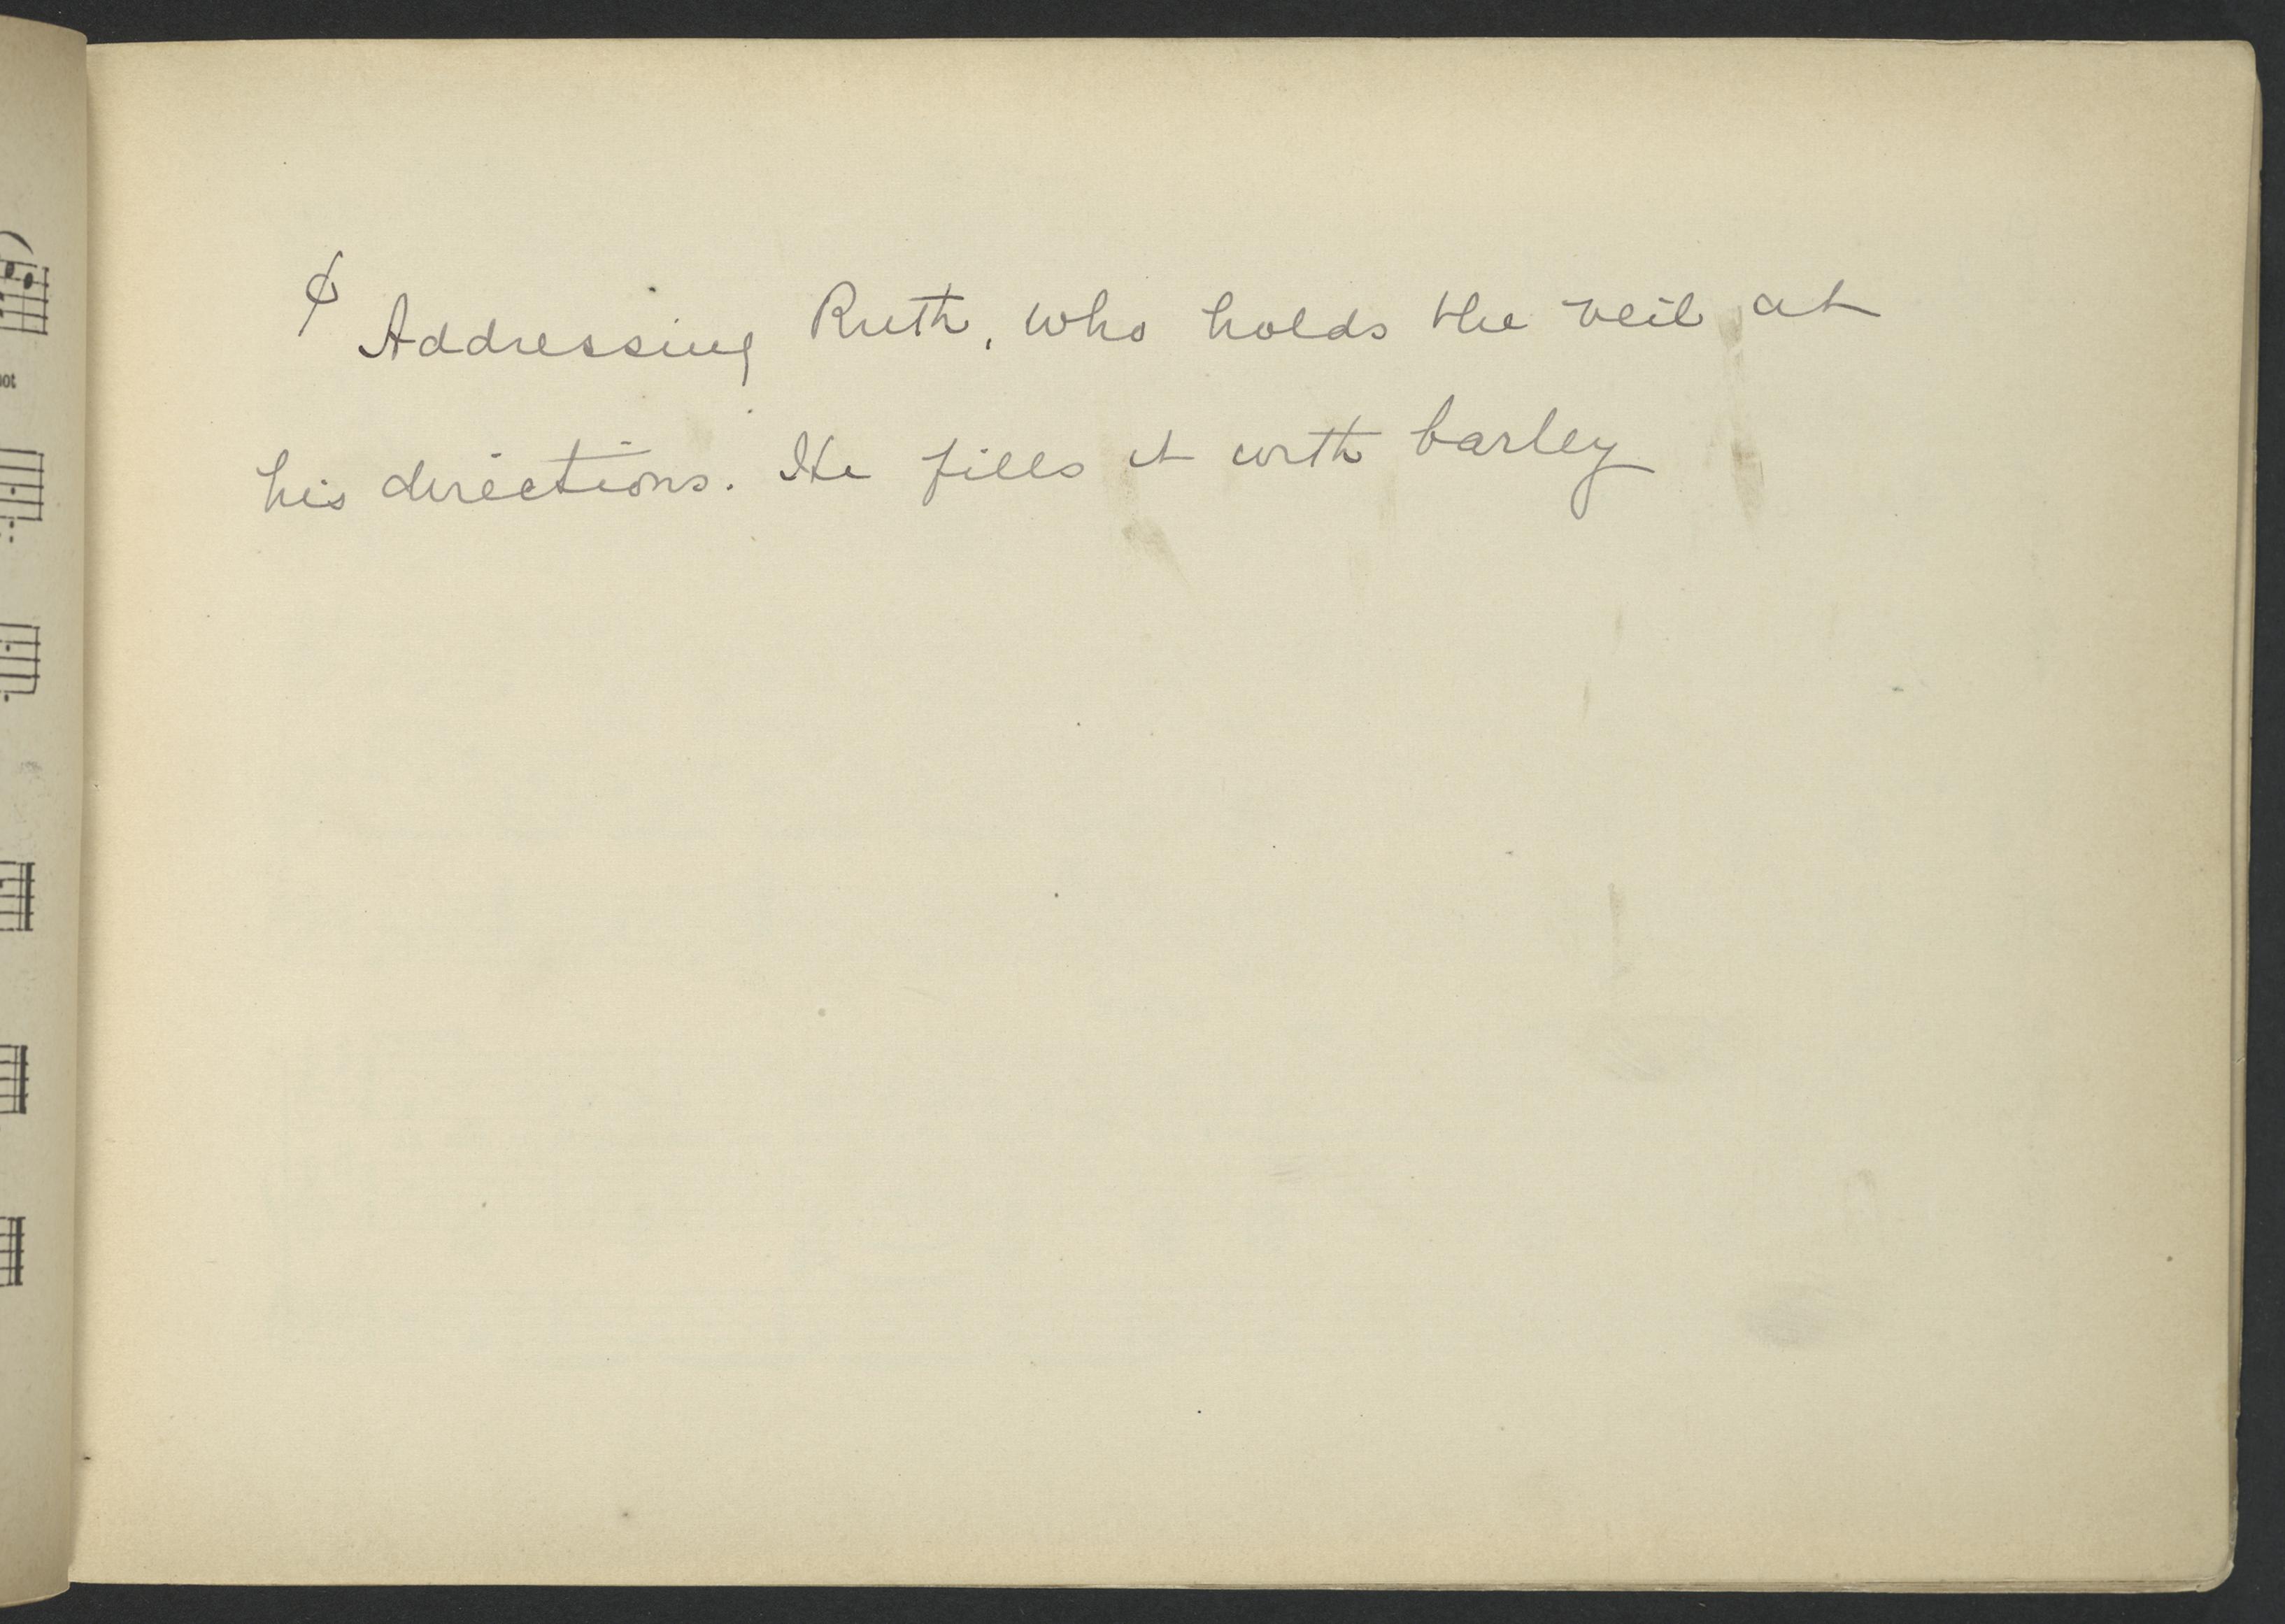 ϕ Addressing Ruth, who holds the veil at
his directions. He fills it with barley